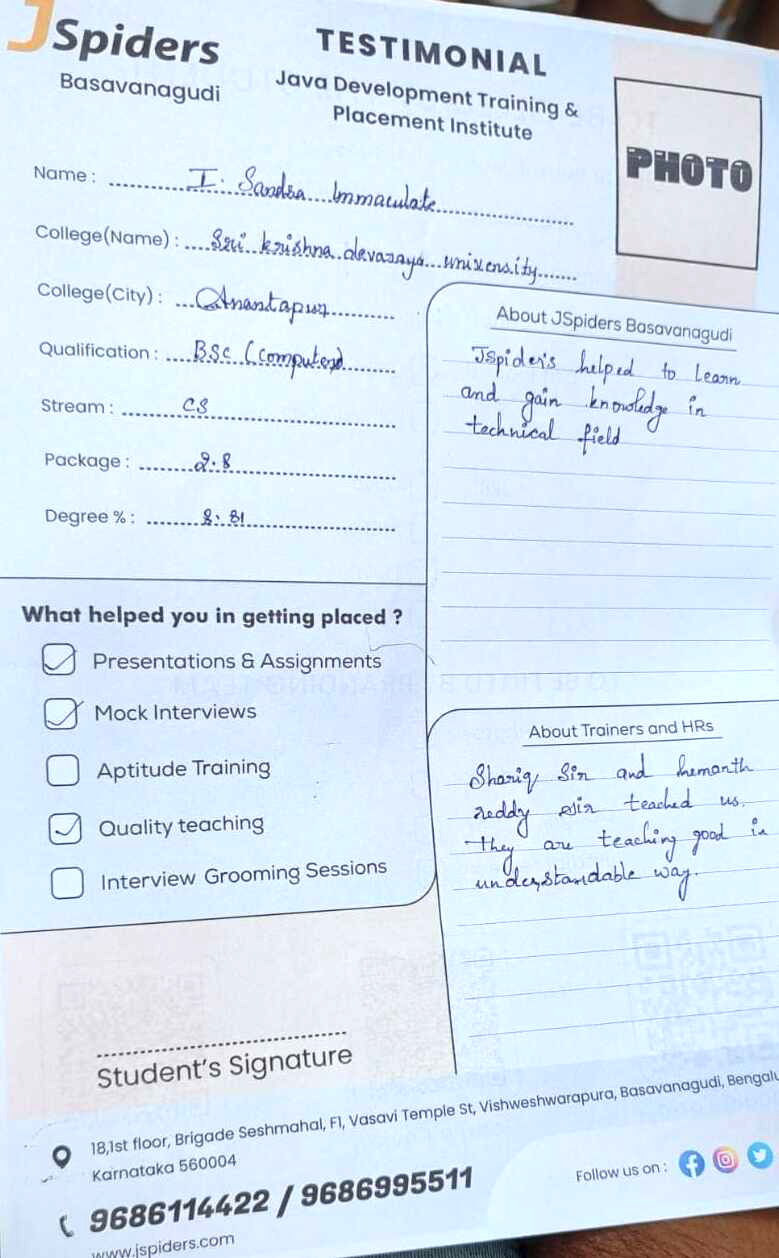 JSpiders
Basavanagudi
TESTIMONIAL
Java Development Training &
Placement Institute
PHOTO
Name : I. Sandra Immaculate
College(Name) : Sri krishna devaraya university
College(City) : Anantapur
Qualification : BSC (computers)
Stream : CS
Package : 2.8
Degree % : 8.81
About JSpiders Basavanagudi
Jspider's helped to learn
and gain knowledge in
technical field
What helped you in getting placed ?
Presentations & Assignments
Mock Interviews
Aptitude Training
Quality teaching
Interview Grooming Sessions
About Trainers and HRs
Shariq Sir and hemanth
reddy sir teached us.
They are teaching good in
understandable way.
Student's Signature
18,1st floor, Brigade Seshmahal, F1, Vasavi Temple St, Vishweshwarapura, Basavanagudi, Bengalu
Karnataka 560004
9686114422 / 9686995511
www.jspiders.com
Follow us on :